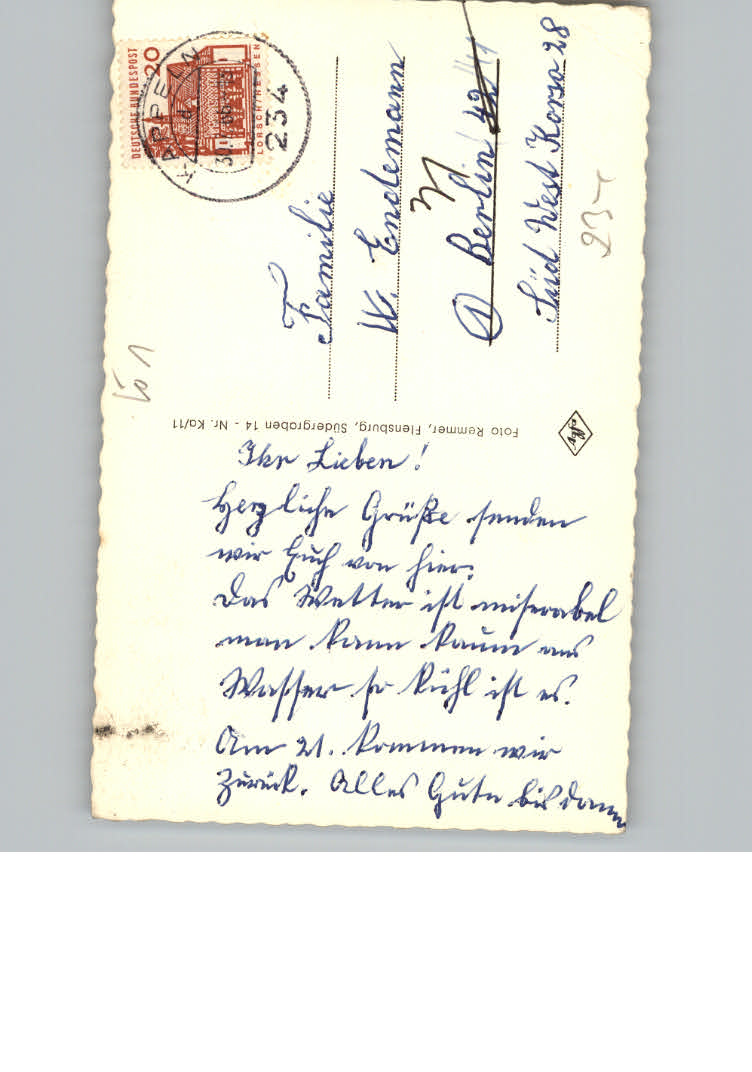 Ihr Lieben!
Herzliche Grüße senden
wir Euch von hier.
Das Wetter ist miserabel
man kann kaum ans
Wasser so kühl ist es.
Am 21. kommen wir
zurück. Alles Gute bis dann
Foto Remmer, Flensburg, Südergraben 14 - Nr. Ka/11
DEUTSCHE BUNDESPOST
20
LORSCH/HESSEN
KAPPELN
234
Familie
W. Endemann
1 Berlin 42 41
Süd West Korso 28
23-